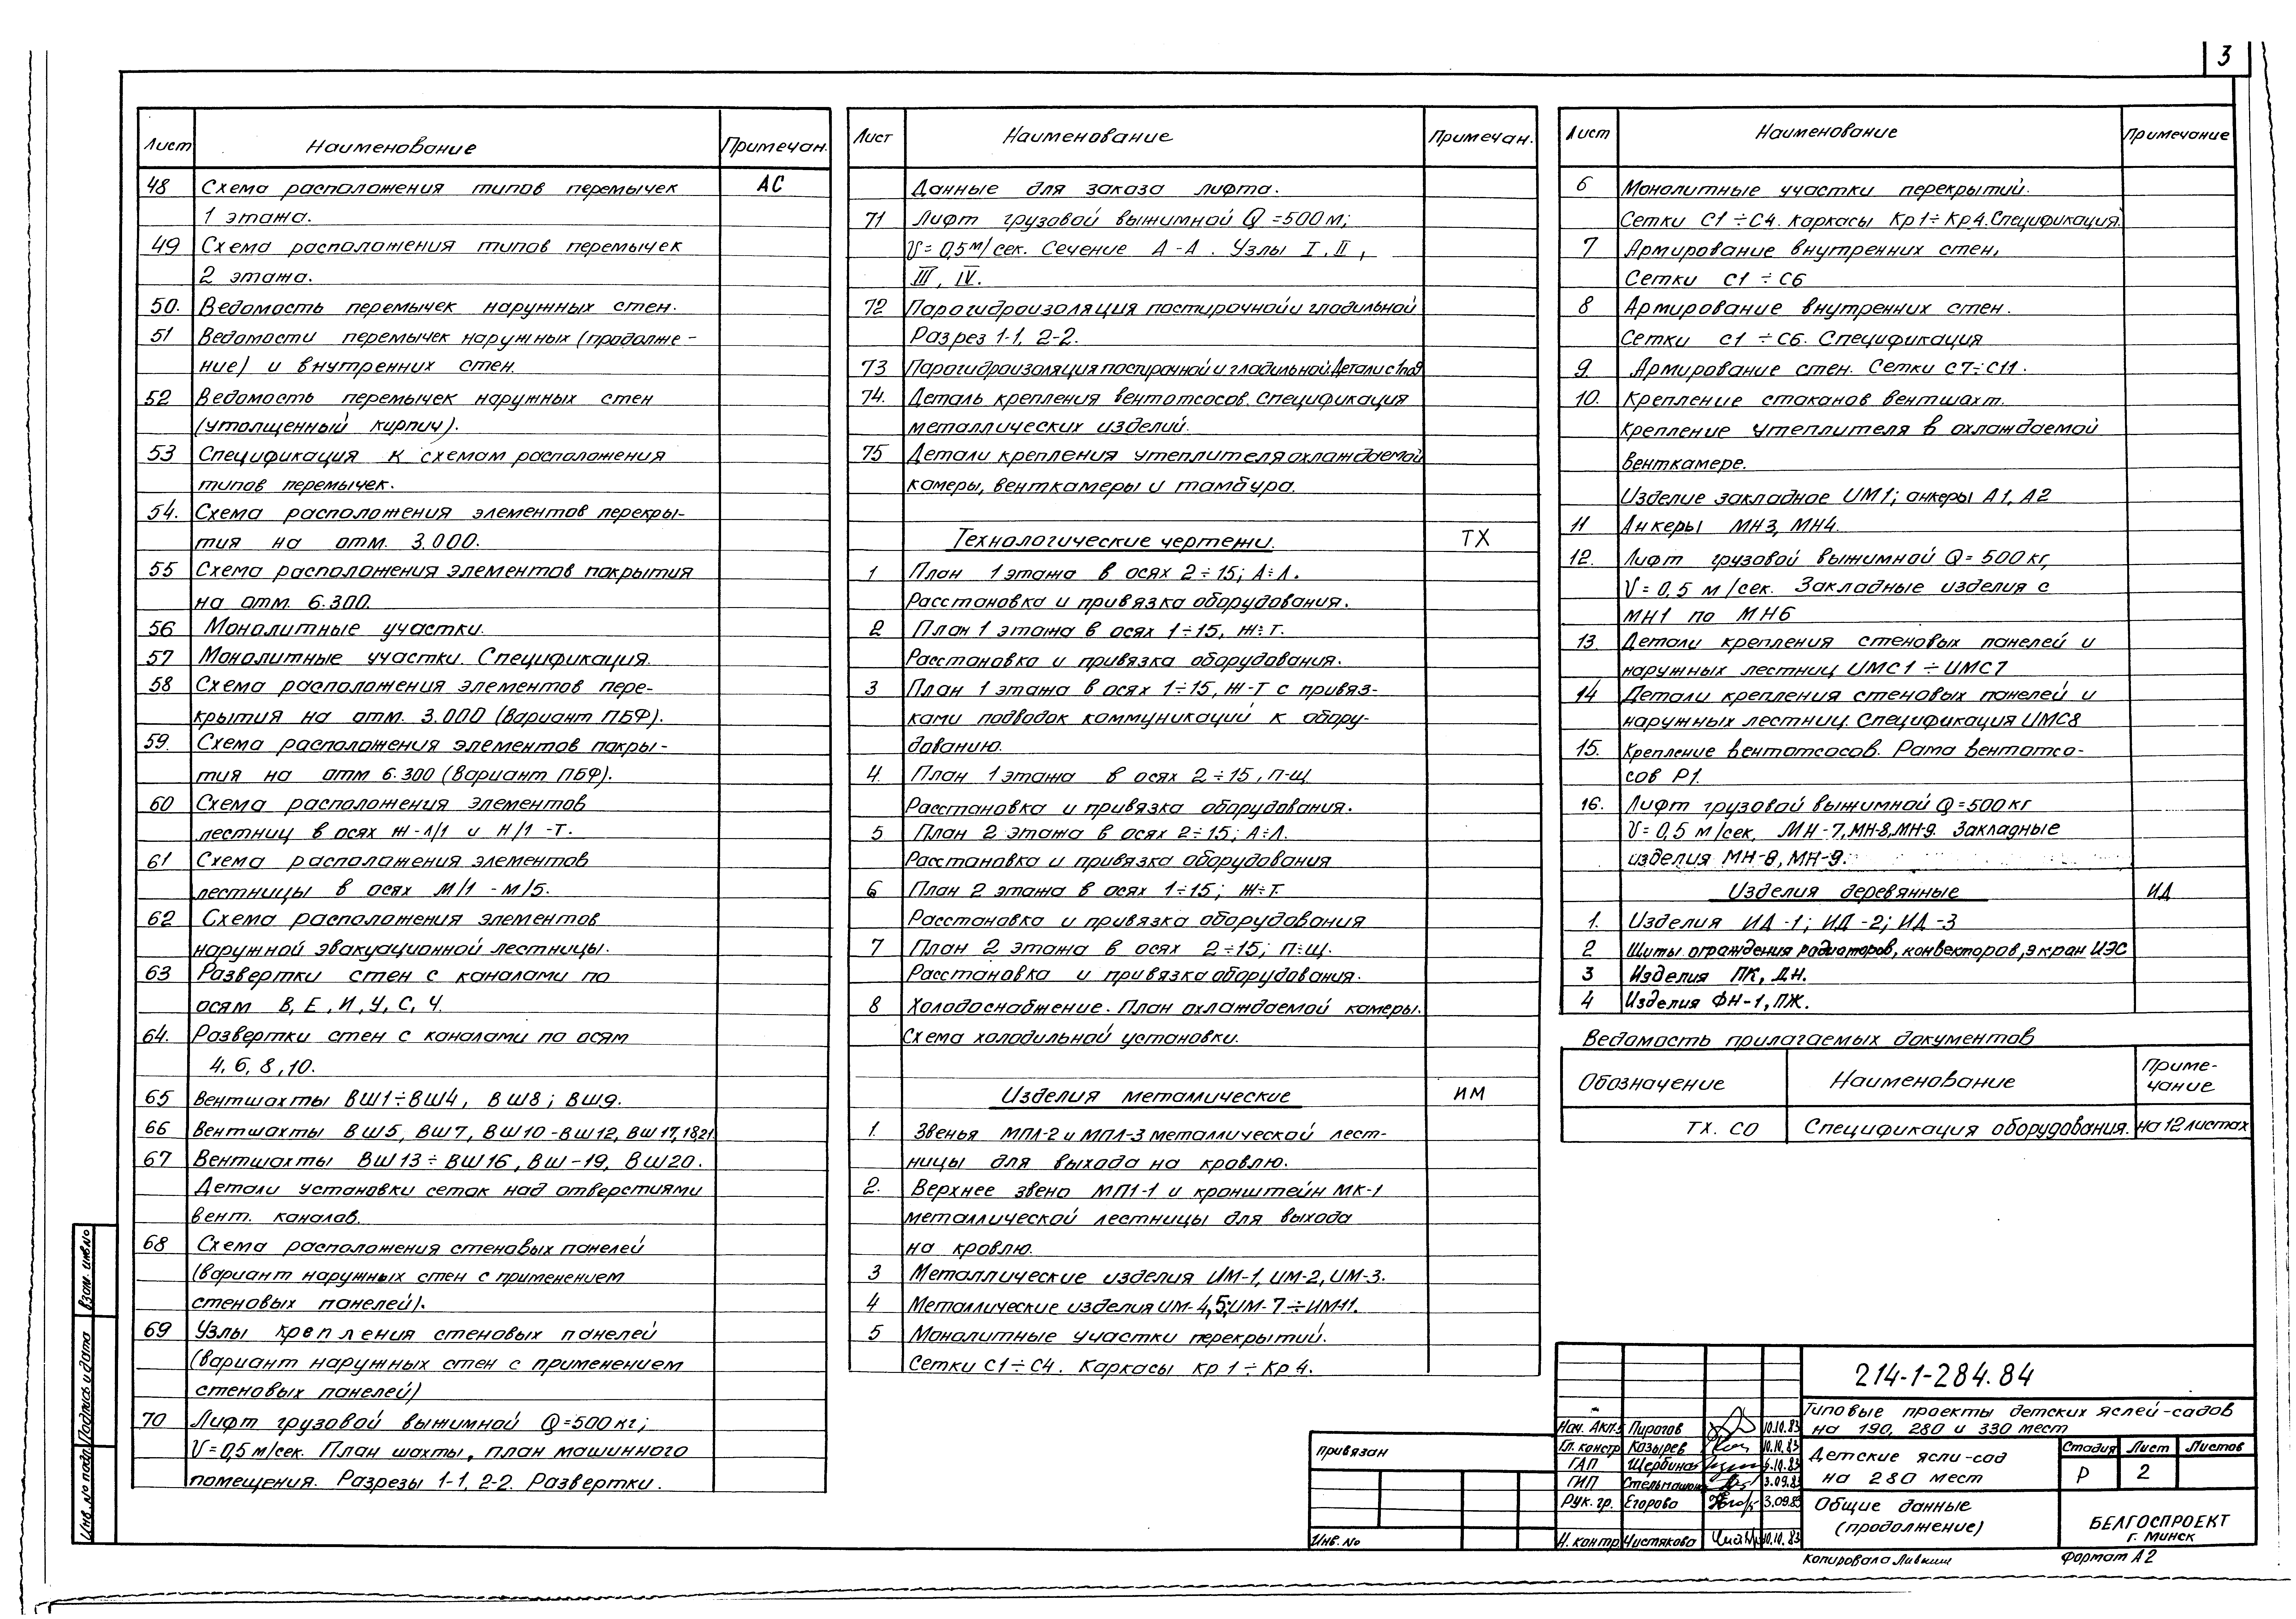 3
Лист Наименование Примечан.
48 Схема расположения типов перемычек АС
1 этажа.
49 Схема расположения типов перемычек
2 этажа.
50. Ведомость перемычек наружных стен.
51 Ведомости перемычек наружных (продолже-
ние) и внутренних стен.
52 Ведомость перемычек наружных стен
(утолщенный кирпич).
53 Спецификация к схемам расположения
типов перемычек.
54. Схема расположения элементов перекры-
тия на отм. 3.000.
55 Схема расположения элементов покрытия
на отм. 6.300.
56 Монолитные участки.
57 Монолитные участки. Спецификация.
58 Схема расположения элементов пере-
крытия на отм. 3.000 (вариант ПБФ).
59. Схема расположения элементов покры-
тия на отм 6.300 (вариант ПБФ).
60 Схема расположения элементов
лестниц в осях Ж-Л/1 и Н/1 -Т.
61 Схема расположения элементов
лестницы в осях М/1 -М/5.
62 Схема расположения элементов
наружной эвакуационной лестницы.
63 Развертки стен с каналами по
осям В, Е, И, У, С, Ч.
64. Развертки стен с каналами по осям
4, 6, 8, 10.
65 Вентшахты ВШ1÷ВШ4, ВШ8; ВШ9.
66 Вентшахты ВШ5, ВШ7, ВШ10-ВШ12, ВШ17,18,21
67 Вентшахты ВШ13÷ВШ16, ВШ-19, ВШ20.
Детали установки сеток над отверстиями
вент. каналов.
68 Схема расположения стеновых панелей
(вариант наружных стен с применением
стеновых панелей).
69 Узлы крепления стеновых панелей
(вариант наружных стен с применением
стеновых панелей)
70 Лифт грузовой выжимной Q=500кг;
V=0,5м/сек. План шахты, план машинного
помещения. Разрезы 1-1, 2-2. Развертки.
Лист Наименование Примечан.
Данные для заказа лифта.
71 Лифт грузовой выжимной Q=500м;
V=0,5м/сек. Сечение А-А. Узлы I, II,
III, IV.
72 Парогидроизоляция постирочной и гладильной
Разрез 1-1, 2-2.
73 Парогидроизоляция постирочной и гладильной Детали с 1 по 9
74. Деталь крепления вентотсосов. Спецификация
металлических изделий.
75 Детали крепления утеплителя охлаждаемой
камеры, венткамеры и тамбура.
Технологические чертежи. ТХ
1 План 1 этажа в осях 2÷15; А÷Л.
Расстановка и привязка оборудования.
2 План 1 этажа в осях 1÷15, Ж÷Т.
Расстановка и привязка оборудования.
3 План 1 этажа в осях 1÷15, Ж-Т с привяз-
ками подводок коммуникаций к обору-
дованию.
4. План 1 этажа в осях 2÷15, П-Щ
Расстановка и привязка оборудования.
5 План 2 этажа в осях 2÷15; А÷Л.
Расстановка и привязка оборудования
6 План 2 этажа в осях 1÷15; Ж÷Т.
Расстановка и привязка оборудования
7 План 2 этажа в осях 2÷15; П÷Щ.
Расстановка и привязка оборудования.
8 Холодоснабжение. План охлаждаемой камеры.
Схема холодильной установки.
Изделия металлические ИМ
1. Звенья МПЛ-2 и МПЛ-3 металлической лест-
ницы для выхода на кровлю.
2. Верхнее звено МП1-1 и кронштейн МК-1
металлической лестницы для выхода
на кровлю.
3 Металлические изделия ИМ-1, ИМ-2, ИМ-3.
4 Металлические изделия ИМ-4,5; ИМ-7÷ИМ11.
5 Монолитные участки перекрытий.
Сетки С1÷С4. Каркасы Кр1÷Кр4.
Лист Наименование Примечание
6 Монолитные участки перекрытий.
Сетки С1÷С4. Каркасы Кр1÷Кр4. Спецификация.
7 Армирование внутренних стен,
Сетки С1÷С6
8 Армирование внутренних стен.
Сетки С1÷С6. Спецификация
9. Армирование стен. Сетки С7÷С11.
10. Крепление стаканов вентшахт.
Крепление утеплителя в охлаждаемой
венткамере.
Изделие закладное ИМ1; анкеры А1, А2
11 Анкеры МН3, МН4.
12. Лифт грузовой выжимной Q=500кг,
V=0,5 м/сек. Закладные изделия с
МН1 по МН6
13. Детали крепления стеновых панелей и
наружных лестниц ИМС1÷ИМС7
14 Детали крепления стеновых панелей и
наружных лестниц. Спецификация ИМС8
15. Крепление вентотсосов. Рама вентотсо-
сов Р1.
16. Лифт грузовой выжимной Q=500кг
V=0,5 м/сек, МН-7, МН-8, МН-9. Закладные
изделия МН-8, МН-9.
Изделия деревянные ИД
1. Изделия ИД-1; ИД-2; ИД-3
2 Щиты ограждения радиаторов, конвекторов, экран ИЭС
3 Изделия ПК, ДН.
4 Изделия ФН-1, ПЖ.
Ведомость прилагаемых документов
Обозначение Наименование Приме-
чание
ТХ. СО Спецификация оборудования. на 12 листах
Взам. инв.№
Подпись и дата
Инв.№ подл.
привязан
Инв. №
214-1-284.84
Типовые проекты детских яслей-садов
на 190, 280 и 330 мест
Нач. АКП.5 Пирогов 10.10.83
Гл. констр Козырев 10.10.83
ГАП Щербина 6.10.83
ГИП 3.09.83
Рук. гр. Егорова 3.09.83
Н. контр Чистякова 10.10.83
Детские ясли-сад
на 280 мест
Стадия Лист Листов
Р 2
Общие данные
(продолжение)
БЕЛГОСПРОЕКТ
г. Минск
Копировала Формат А2